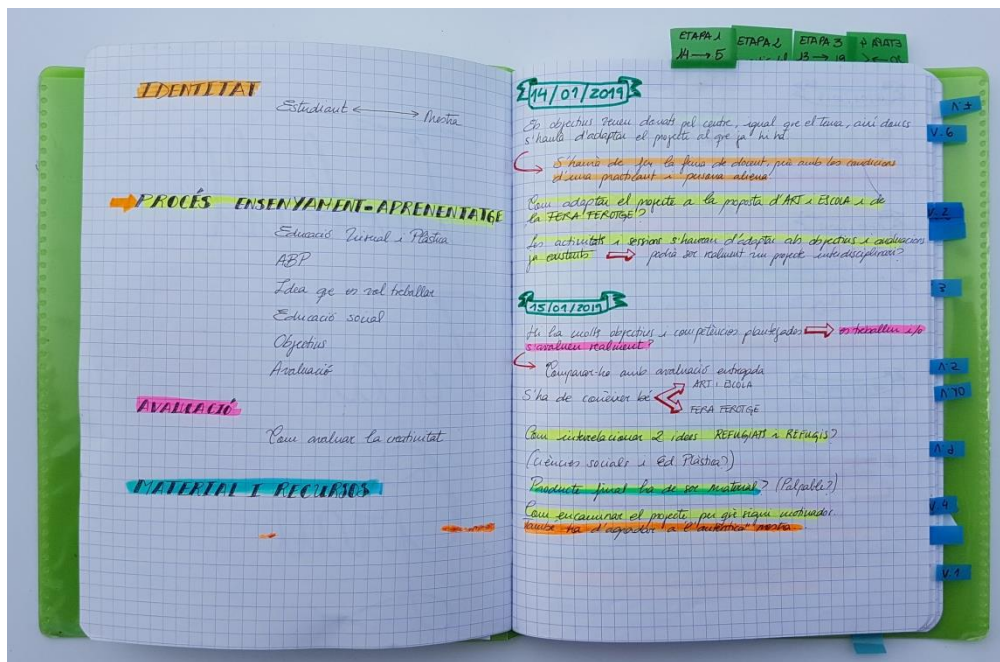 IDENTITAT
Estudiant ⟷ Mestra
PROCÉS ENSENYAMENT-APRENENTATGE
Educació Visual i Plàstica
ABP
Idea que es vol treballar
Educació social
Objectius
Avaluació
AVALUACIÓ
Com avaluar la creativitat
MATERIAL I RECURSOS
ETAPA 1
14 → 5
ETAPA 2
ETAPA 3
13 → 19
14/01/2019
Els objectius venen donats pel centre, igual que el tema, així doncs
s'haurà d'adaptar el projecte al que ja hi ha
S'haurà de fer la feina de docent, però amb les condicions
d'una practicant i persona aliena
Com adaptar el projecte a la proposta d'ART i ESCOLA i de
la FERA FEROTGE?
Les activitats i sessions s'hauran d'adaptar als objectius i avaluacions
ja existents ⟹ podrà ser realment un projecte interdisciplinari?
15/01/2019
Hi ha molts objectius i competències plantejades ⟹ es treballen i/o
s'avaluen realment?
Comparar-ho amb avaluació entregada
S'ha de conèixer bé
ART i ESCOLA
FERA FEROTGE
Com interelacionar 2 idees REFUGIATS i REFUGIS?
(Ciències socials i Ed. Plàstica?)
Producte final ha de ser material? (Palpable?)
Com encaminar el projecte per què siguin motivador
També ha d'agradar a l'"autèntica" mestra
V.6
V.2
3
1.2
1.10
V.4
V.1